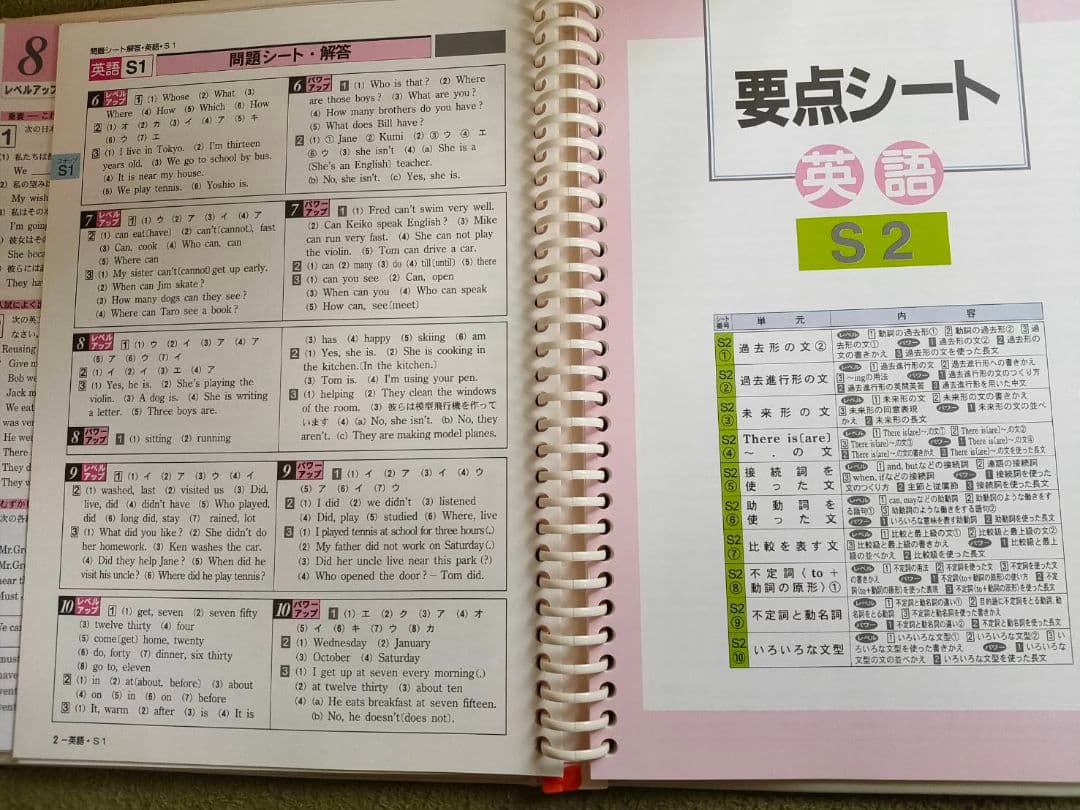 8
レベルアップ
1
次の日本
(1) 私たちは
We
My wish
(3) 私はその
I'm going
She beca
They hav
なさい。
Reusing
Give m
Bob we
Jack m
We eat
was ver
He wer
They d
They
次の各
Mr.Gre
near th
Must
We can
must
have
vent
vent
問題シート解答・英語・S1
英語 S1
問題シート・解答
ステップ
S1
6 レベルアップ 1 (1) Whose (2) What (3)
Where (4) How (5) Which (6) How
2 (1) オ (2) カ (3) イ (4) ア (5) キ
(6) ウ (7) エ
3 (1) I live in Tokyo. (2) I'm thirteen
years old. (3) We go to school by bus.
(4) It is near my house.
(5) We play tennis. (6) Yoshio is.
6 パワーアップ 1 (1) Who is that? (2) Where
are those boys? (3) What are you?
(4) How many brothers do you have?
(5) What does Bill have?
2 (1) ① Jane ② Kumi (2) ③ ウ ④ エ
⑤ ウ (3) she isn't (4) (a) She is a
(She's an English) teacher.
(b) No, she isn't. (c) Yes, she is.
7 レベルアップ 1 (1) ウ (2) ア (3) イ (4) ア
2 (1) can eat[have] (2) can't(cannot), fast
(3) Can, cook (4) Who can, can
(5) Where can
3 (1) My sister can't(cannot) get up early.
(2) When can Jim skate?
(3) How many dogs can they see?
(4) Where can Taro see a book?
7 パワーアップ 1 (1) Fred can't swim very well.
(2) Can Keiko speak English? (3) Mike
can run very fast. (4) She can not play
the violin. (5) Tom can drive a car.
2 (1) can (2) many (3) do (4) till(until) (5) there
3 (1) can you see (2) Can, open
(3) When can you (4) Who can speak
(5) How can, see[meet]
8 レベルアップ 1 (1) ウ (2) イ (3) ア (4) ア
(5) ア (6) ウ (7) イ
2 (1) イ (2) イ (3) エ (4) ア
3 (1) Yes, he is. (2) She's playing the
violin. (3) A dog is. (4) She is writing
a letter. (5) Three boys are.
8 パワーアップ 1 (1) sitting (2) running
(3) has (4) happy (5) skiing (6) am
2 (1) Yes, she is. (2) She is cooking in
the kitchen.[In the kitchen.]
(3) Tom is. (4) I'm using your pen.
3 (1) helping (2) They clean the windows
of the room. (3) 彼らは模型飛行機を作って
います (4) (a) No, she isn't. (b) No, they
aren't. (c) They are making model planes.
9 レベルアップ 1 (1) イ (2) ア (3) ウ (4) イ
2 (1) washed, last (2) visited us (3) Did,
live, did (4) didn't have (5) Who played,
did (6) long did, stay (7) rained, lot
3 (1) What did you like? (2) She didn't do
her homework. (3) Ken washes the car.
(4) Did they help Jane? (5) When did he
visit his uncle? (6) Where did he play tennis?
9 パワーアップ 1 (1) イ (2) ア (3) イ (4) ウ
(5) ア (6) イ (7) ウ
2 (1) I did (2) we didn't (3) listened
(4) Did, play (5) studied (6) Where, live
3 (1) I played tennis at school for three hours(.)
(2) My father did not work on Saturday(.)
(3) Did her uncle live near this park (?)
(4) Who opened the door? − Tom did.
10 レベルアップ 1 (1) get, seven (2) seven fifty
(3) twelve thirty (4) four
(5) come[get] home, twenty
(6) do, forty (7) dinner, six thirty
(8) go to, eleven
2 (1) in (2) at(about, before) (3) about
(4) on (5) in (6) on (7) before
3 (1) It, warm (2) after (3) is (4) It is
10 パワーアップ 1 (1) エ (2) ク (3) ア (4) オ
(5) イ (6) キ (7) ウ (8) カ
2 (1) Wednesday (2) January
(3) October (4) Saturday
3 (1) I get up at seven every morning(.)
(2) at twelve thirty (3) about ten
(4) (a) He eats breakfast at seven fifteen.
(b) No, he doesn't(does not).
2 −英語・S1
要点シート
英語
S2
シート番号 単元 内容
S2① 過去形の文② レベル 1 動詞の過去形① 2 動詞の過去形② 3 過
去形の文① パワー 1 過去形の文② 2 過去形の
文の書きかえ 3 過去形を使った長文
S2② 過去進行形の文 レベル 1 過去進行形の文 2 過去進行形への書きかえ
3 〜ingの用法 パワー 1 過去進行形の文のつくり方
2 過去進行形の英問英答 3 過去進行形を用いた中文
S2③ 未来形の文 レベル 1 未来形の文① 2 未来形の文の書きかえ
3 未来形の同意表現 パワー 1 未来形の文の並べ
かえ 2 未来形の長文
S2④ There is[are]〜.の文 レベル 1 There is[are]〜.の文① 2 There is[are]〜.の文②
3 There is[are]〜.の文③ パワー 1 There is[are]〜.の文④
2 There is[are]〜.の文の書きかえ 3 There is[are]〜.の文を使った長文
S2⑤ 接続詞を使った文 レベル 1 and, butなどの接続詞 2 連語の接続詞
3 when, ifなどの接続詞 パワー 1 接続詞を使った
文のつくり方 2 主節と従属節 3 接続詞を使った長文
S2⑥ 助動詞を使った文 レベル 1 can, mayなどの助動詞 2 助動詞のような働きをす
る語句① 3 助動詞のような働きをする語句②
パワー 1 いろいろな意味を表す助動詞 2 助動詞を使った長文
S2⑦ 比較を表す文 レベル 1 比較級と最上級の文① 2 比較級と最上級の文②
3 比較級と最上級の書きかえ パワー 1 比較級と最上
級の書きかえ 2 比較級を使った長文
S2⑧ 不定詞(to+動詞の原形)① レベル 1 不定詞の用法 2 不定詞を使った文 3 不定詞を使った文の
書きかえ パワー 1 不定詞(to+動詞の原形)の使い方 2 不定
詞(to+動詞の原形)を使った表現 3 不定詞を使った長文
S2⑨ 不定詞と動名詞 レベル 1 不定詞と動名詞の違い① 2 目的語に不定詞をとる動詞,動
名詞をとる動詞 3 不定詞と動名詞を使った文の書きかえ
パワー 1 不定詞と動名詞の違い② 2 不定詞と動名詞を使った長文
S2⑩ いろいろな文型 レベル 1 いろいろな文型① 2 いろいろな文型② 3 い
ろいろな文型を使った書きかえ パワー 1 いろいろな
文型の文の並べかえ 2 いろいろな文型を使った長文